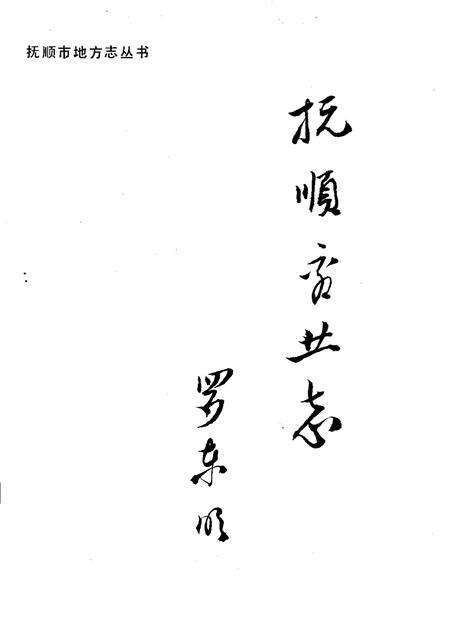 抚顺市地方志丛书
抚順商业志
罗东明